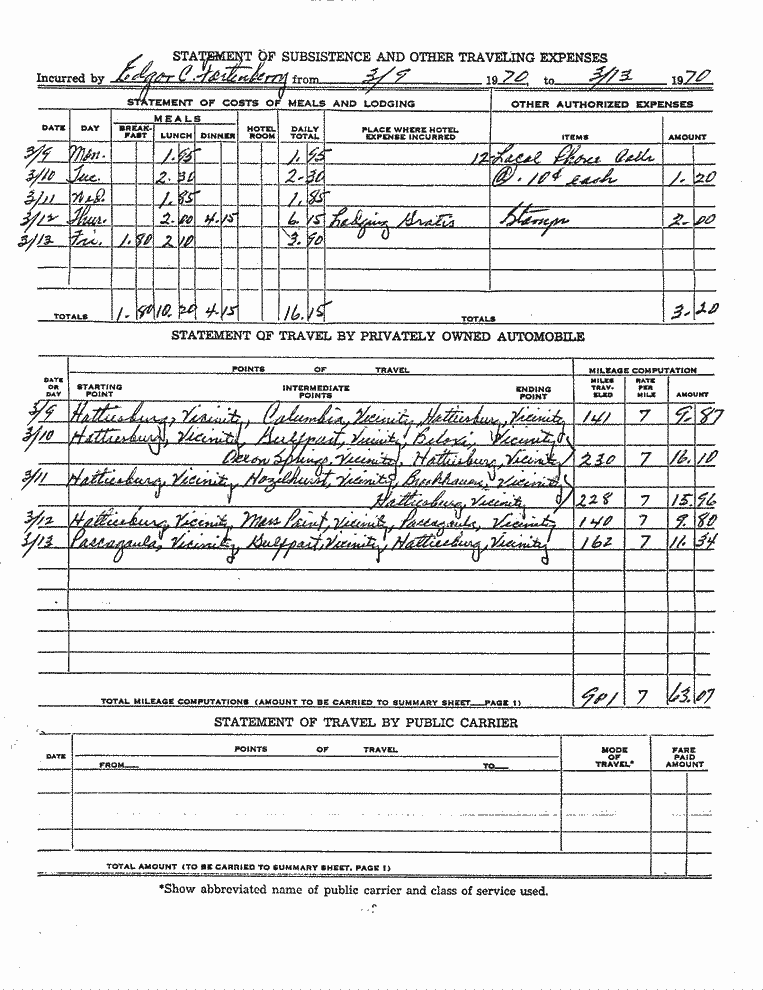 STATEMENT OF SUBSISTENCE AND OTHER TRAVELING EXPENSES
Incurred by Edgar C. Fortenberry from 3/9 1970, to 3/13 1970
STATEMENT OF COSTS OF MEALS AND LODGING OTHER AUTHORIZED EXPENSES
DATE DAY MEALS BREAK-FAST LUNCH DINNER HOTEL ROOM DAILY TOTAL PLACE WHERE HOTEL EXPENSE INCURRED ITEMS AMOUNT
3/9 Mon. 1.95 1.95 12 Local Phone Calls
3/10 Tue. 2.30 2.30 @ .10¢ each 1.20
3/11 Wed. 1.85 1.85
3/12 Thur. 2.00 4.15 6.15 Lodging Gratis Stamps 2.00
3/13 Fri. 1.80 2 10 3.90
TOTALS 1.80 10.20 4.15 16.15 TOTALS 3.20
STATEMENT OF TRAVEL BY PRIVATELY OWNED AUTOMOBILE
DATE OR DAY POINTS OF TRAVEL MILEAGE COMPUTATION
STARTING POINT INTERMEDIATE POINTS ENDING POINT MILES TRAV-ELED RATE PER MILE AMOUNT
3/9 Hattiesburg, Vicinity, Columbia, Vicinity, Hattiesburg, Vicinity 141 7 9.87
3/10 Hattiesburg, Vicinity, Gulfport, Vicinity, Biloxi, Vicinity,
Ocean Springs, Vicinity, Hattiesburg, Vicinity 230 7 16.10
3/11 Hattiesburg, Vicinity, Hazelhurst, Vicinity, Brookhaven, Vicinity
Hattiesburg, Vicinity 228 7 15.96
3/12 Hattiesburg, Vicinity, Moss Point, Vicinity, Pascagoula, Vicinity 140 7 9.80
3/13 Pascagoula, Vicinity, Gulfport, Vicinity, Hattiesburg, Vicinity 162 7 11.34
TOTAL MILEAGE COMPUTATIONS (AMOUNT TO BE CARRIED TO SUMMARY SHEET PAGE 1) 901 7 63.07
STATEMENT OF TRAVEL BY PUBLIC CARRIER
DATE POINTS OF TRAVEL MODE OF TRAVEL* FARE PAID AMOUNT
FROM TO
TOTAL AMOUNT (TO BE CARRIED TO SUMMARY SHEET, PAGE 1)
*Show abbreviated name of public carrier and class of service used.